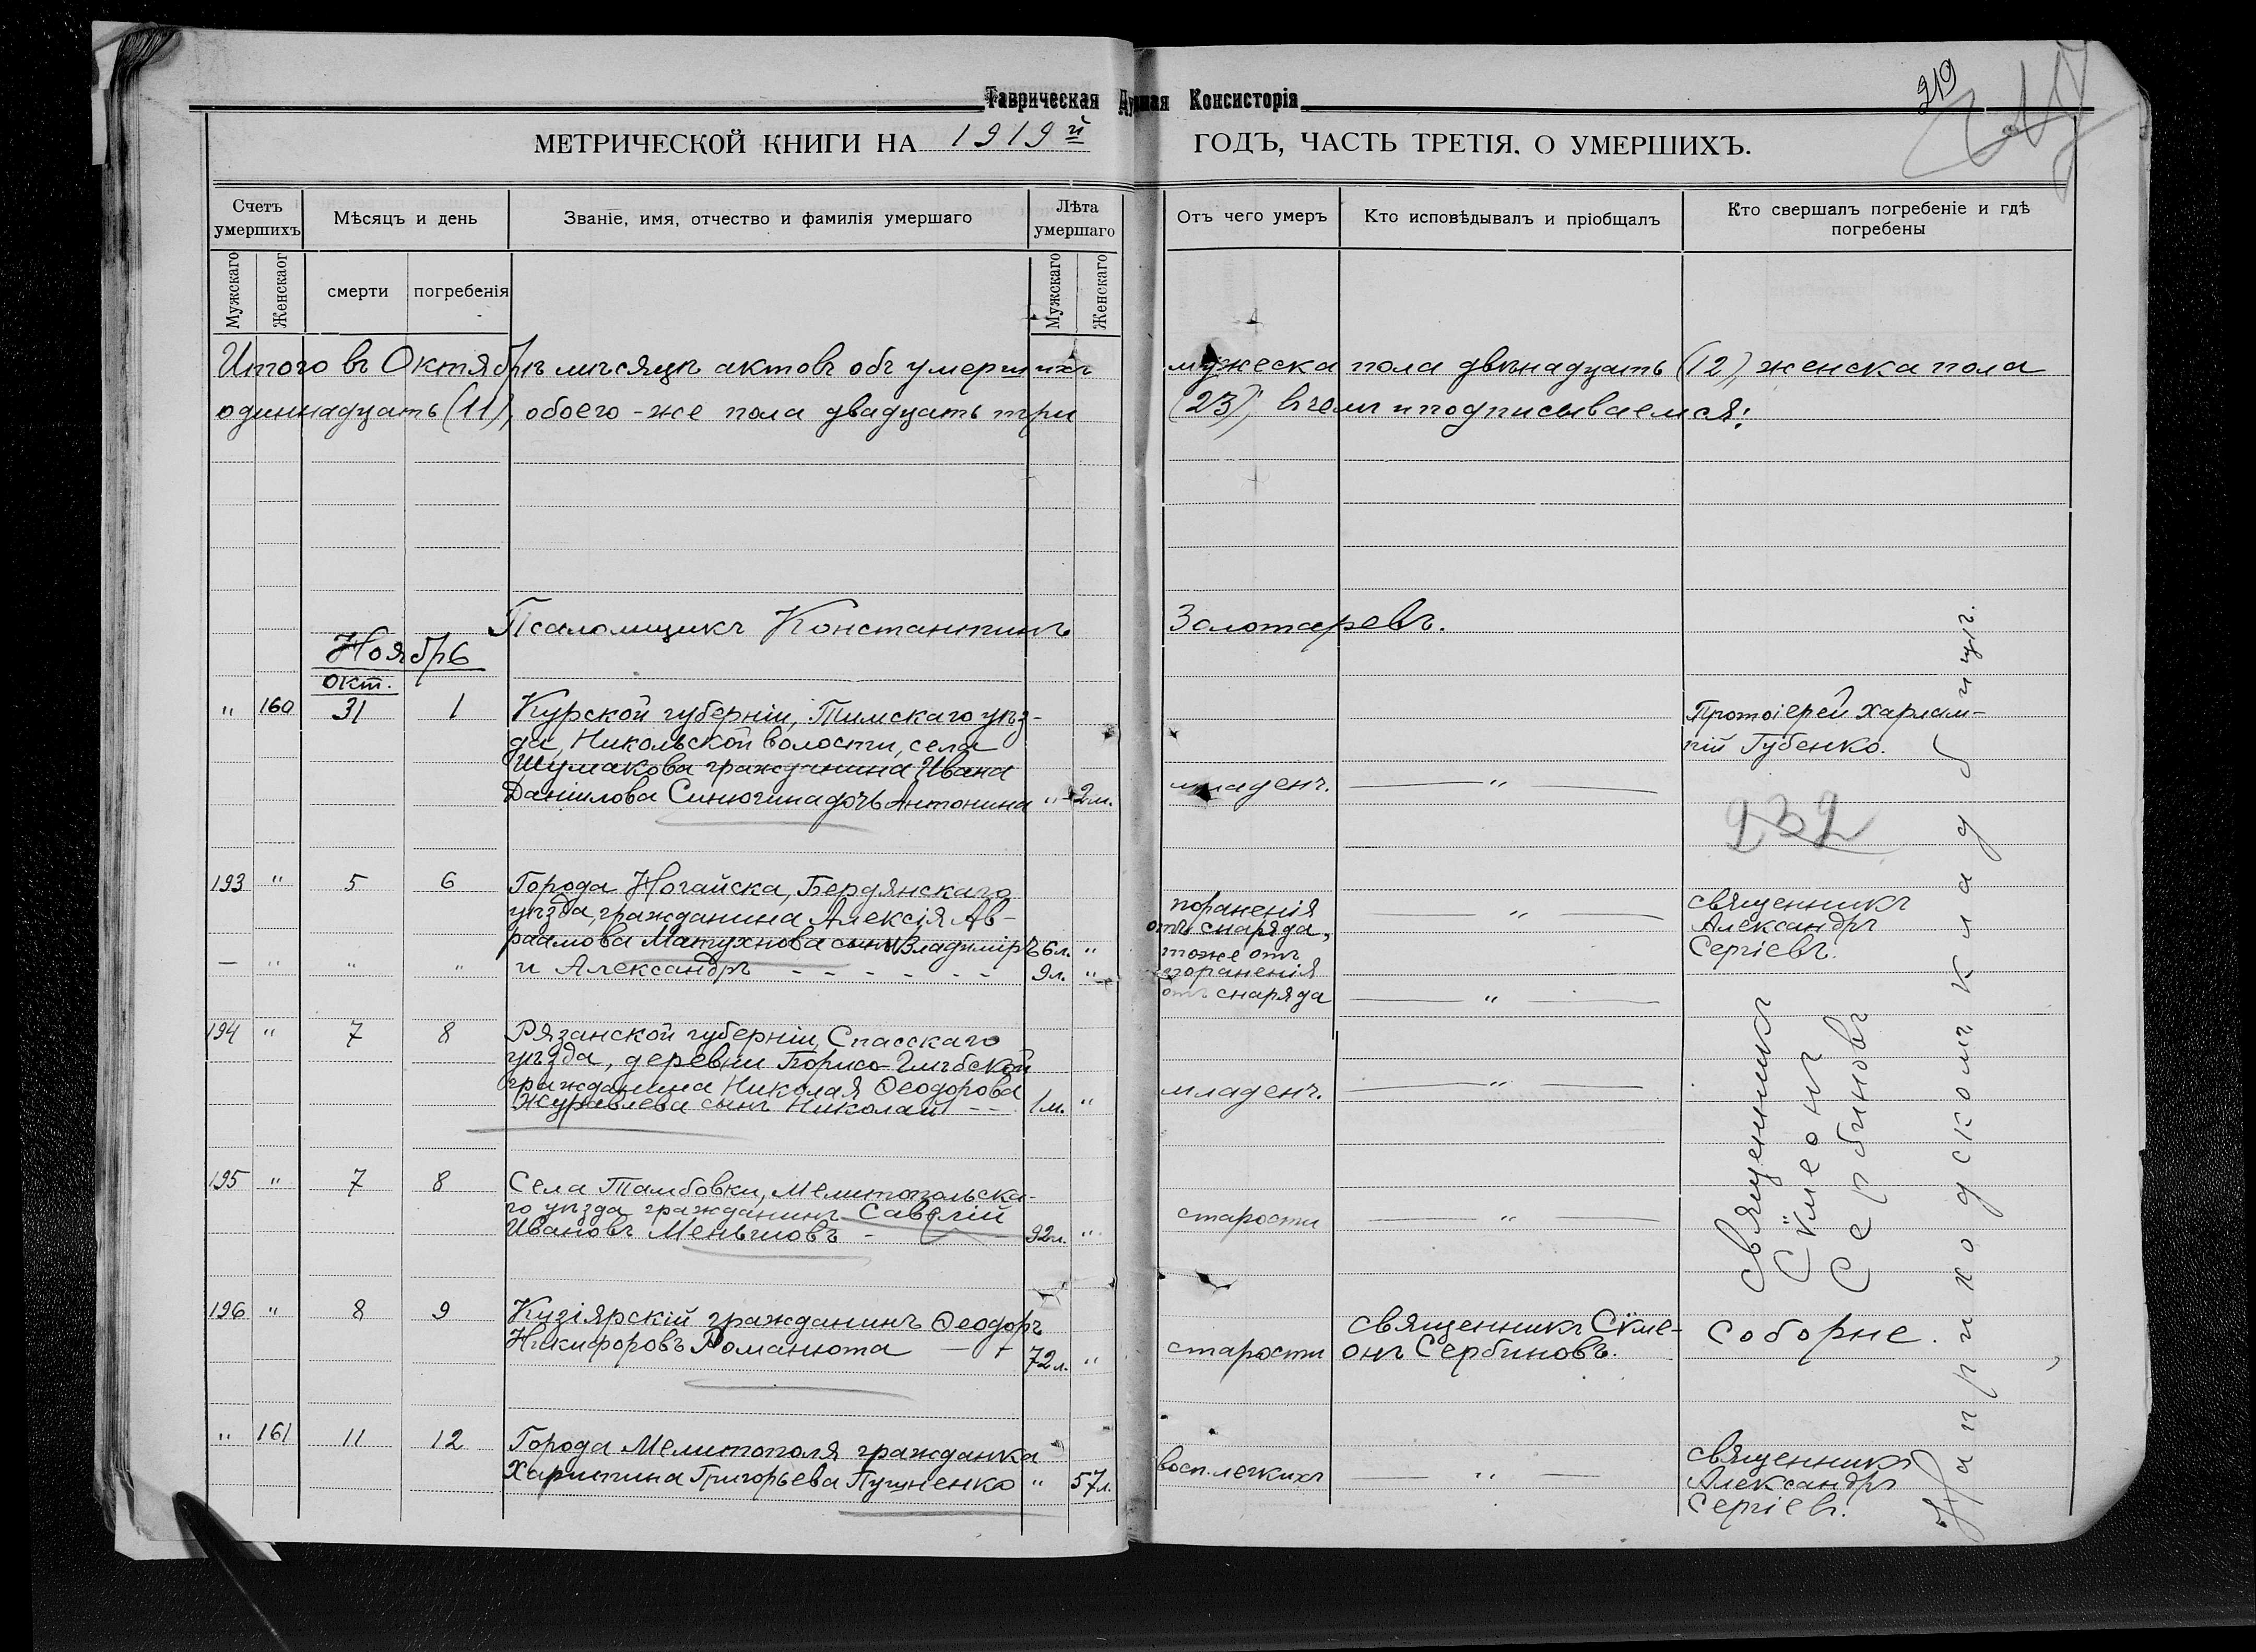 219
Таврическая Духная Консисторія
МЕТРИЧЕСКОЙ КНИГИ НА 1919й ГОДЪ, ЧАСТЬ ТРЕТІЯ, О УМЕРШИХЪ.
Счетъ умершихъ
Мѣсяцъ и день
Званіе, имя, отчество и фамилія умершаго
Лѣта умершаго
Отъ чего умеръ
Кто исповѣдывалъ и пріобщалъ
Кто свершалъ погребеніе и гдѣ погребены
Мужскаго
Женскаог
смерти
погребенія
Мужскаго
Женскаго
Итого въ Октябрѣ мѣсяцѣ актовъ объ умершихъ мужеска пола двѣнадцать (12), женска пола
одиннадцать (11), обоего-же пола двадцать три (23), въ чемъ и подписываемся:
Псаломщикъ Константинъ Золотаревъ.
Ноябрь
окт.
" 160 31 1 Курской губерніи, Тимскаго уѣз-
да, Никольской волости, села
Шумакова гражданина Ивана
Даніилова Синюгина дочь Антонина " 2м.
младенч. — " —
Протоіерей Харлам-
пій Губенко.
232
193 " 5 6 Города Ногайска, Бердянскаго
уѣзда, гражданина Алексія Ав-
раамова Матухнова сынъ Владиміръ 6л. "
— " " " и Александръ - - - - - - - 9л. "
пораненія
отъ снаряда, — " —
тоже отъ
пораненія
отъ снаряда — " —
священникъ
Александръ
Сергіевъ.
194 " 7 8 Рязанской губерніи, Спасскаго
уѣзда, деревни Борисо-Глѣбской
гражданина Николая Ѳеодорова
Журавлева сынъ Николай - - 1м. "
младенч. — " —
Священникъ
Сѵмеонъ
Сербиновъ
195 " 7 8 Села Тамбовки, Мелитопольска-
го уѣзда гражданинъ Савелій
Ивановъ Меньшовъ - 92л. "
старости — " —
196 " 8 9 Кизіярскій гражданинъ Ѳеодоръ
Никифоровъ Романюта — 72л. "
старости
священникъ Сѵме-
онъ Сербиновъ.
Соборне.
" 161 11 12 Города Мелитополя гражданка
Харитина Григорьева Пушненко " 57л.
восп. легкихъ — " —
священникъ
Александръ
Сергіевъ.
На приходскомъ кладбищѣ.